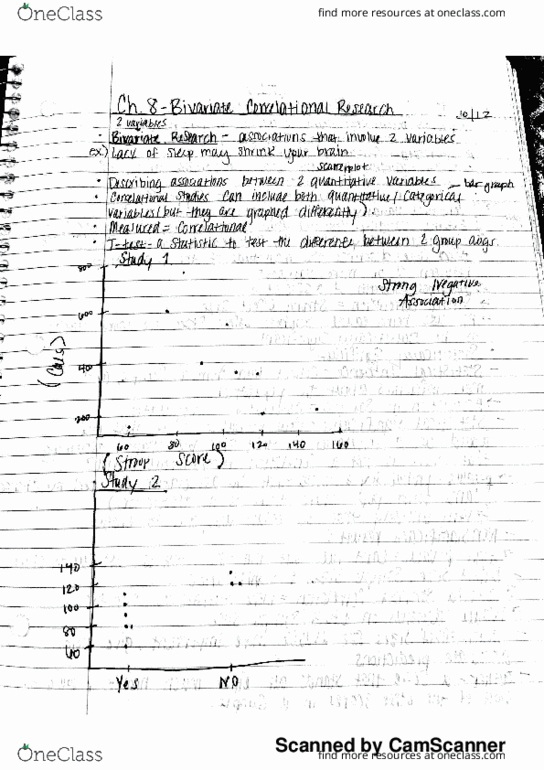 OneClass
find more resources at oneclass.com
Ch. 8 - Bivariate Correlational Research
10/12
2 variables
• Bivariate Research - associations that involve 2 variables
ex) Lack of sleep may shrink your brain
scatterplot
• Describing associations between 2 quantitative variables
bar graph
• Correlational studies can include both quantitative/categorical
variables (but they are graphed differently)
• Measured = Correlational
• T-test - a statistic to test the difference between 2 group avgs.
Study 1
800
Strong Negative
Association
600
400
200
60 80 100 120 140 160
(Stroop Score)
Study 2
140
120
100
80
60
Yes NO
Scanned by CamScanner
OneClass
find more resources at oneclass.com